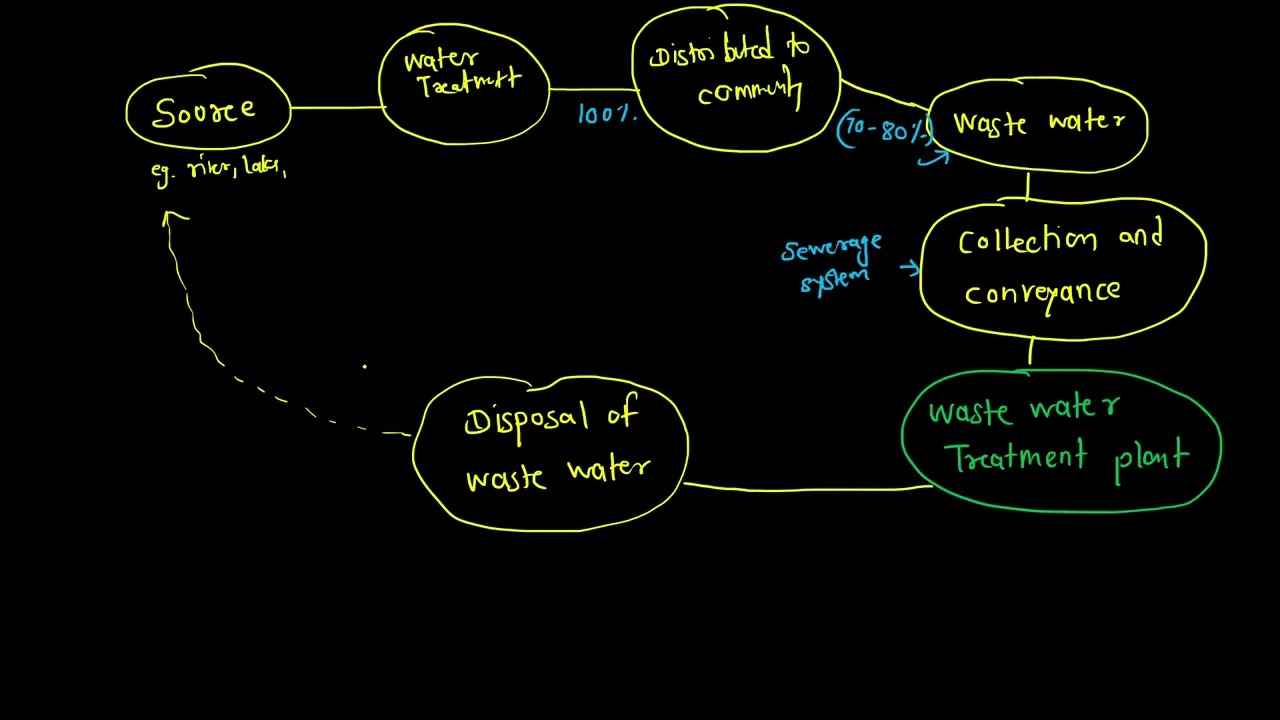 Source
eg. river, lakes,
Water
Treatment
100%.
Distributed to
community
(70-80%)
Waste water
Sewerage
system
Collection and
conveyance
Waste water
Treatment plant
Disposal of
waste water